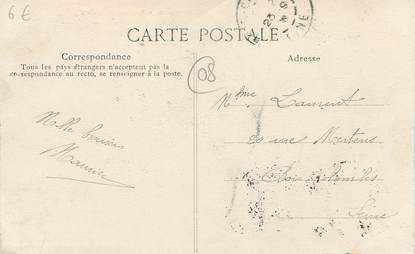 6€
CARTE POSTALE
Correspondance
Tous les pays étrangers n'acceptent pas la
correspondance au recto, se renseigner à la poste.
Adresse
08
Mme Laurent
rue
Bois Colombes
Seine
Maurice